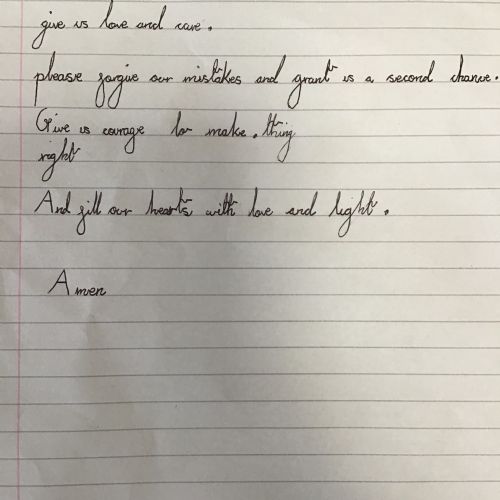 give us love and care.
please forgive our mistakes and grant us a second chance.
Give us courage to make. thing
right
And fill our hearts with love and light.
Amen